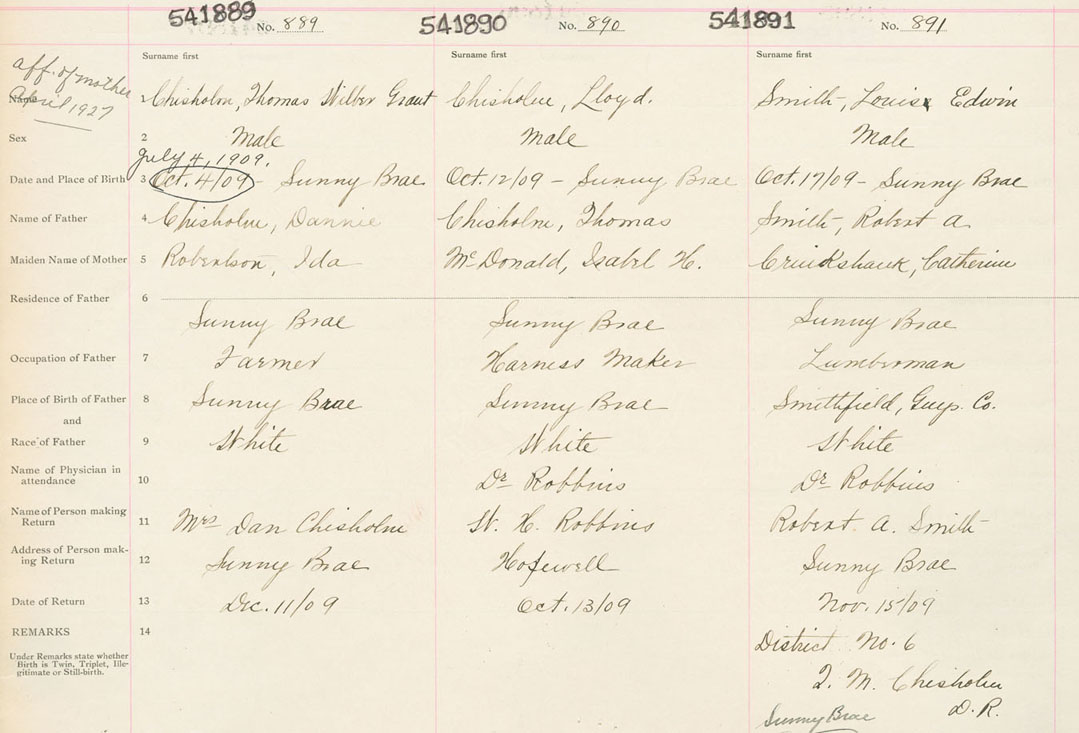 541889 No. 889 541890 No. 890 541891 No. 891
Surname first Surname first Surname first
aff. of mother
April 1927
Name 1 Chisholm, Thomas Wilber Grant Chisholm, Lloyd. Smith, Louis Edwin
Sex 2 Male Male Male
July 4, 1909.
Date and Place of Birth 3 Oct. 4/09 - Sunny Brae Oct. 12/09 - Sunny Brae Oct. 17/09 - Sunny Brae
Name of Father 4 Chisholm, Dannie Chisholm, Thomas Smith, Robert A
Maiden Name of Mother 5 Robertson, Ida McDonald, Isabel H. Cruikshank, Catherine
Residence of Father 6
Sunny Brae Sunny Brae Sunny Brae
Occupation of Father 7 Farmer Harness Maker Lumberman
Place of Birth of Father 8 Sunny Brae Sunny Brae Smithfield, Guys. Co.
and
Race of Father 9 White White White
Name of Physician in
attendance 10 Dr Robbins Dr Robbins
Name of Person making
Return 11 Mrs Dan Chisholm W. H. Robbins Robert A. Smith
Address of Person mak-
ing Return 12 Sunny Brae Hopewell Sunny Brae
Date of Return 13 Dec. 11/09 Oct. 13/09 Nov. 15/09
REMARKS 14
District No. 6
Under Remarks state whether
Birth is Twin, Triplet, Ille-
gitimate or Still-birth.
J. M. Chisholm
D. R.
Sunny Brae